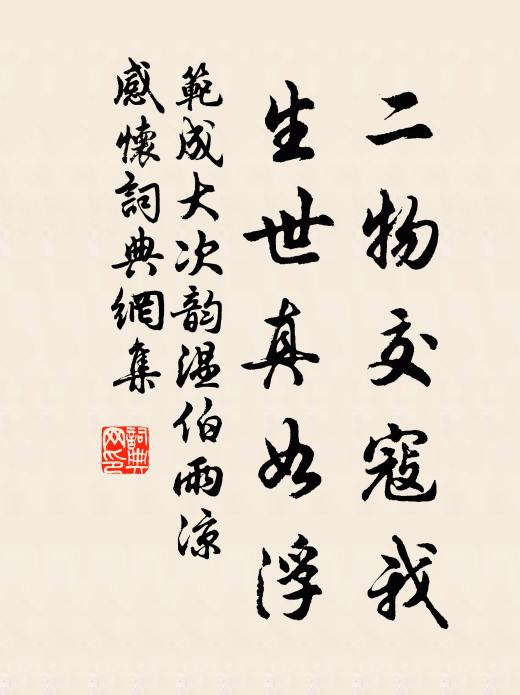 二物交寇我
生世真如浮
範成大次韵温伯雨凉
感懷詞典網集
詞典網印